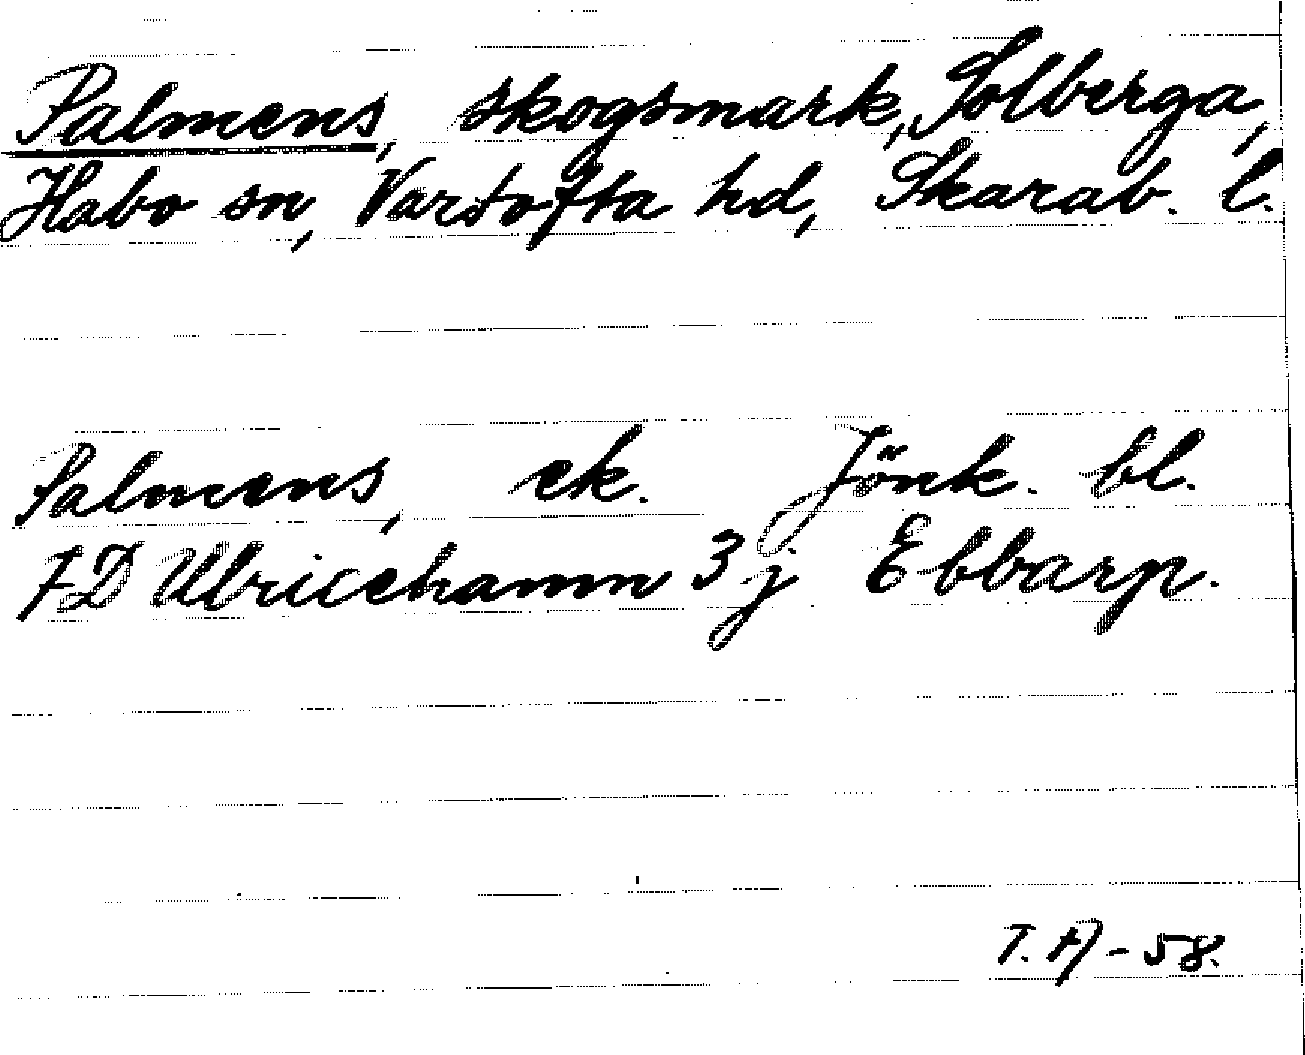 Palmens, skogsmark, Solberga,
Habo sn, Vartofta hd, Skarab. l.
Palmens, ek. Jönk. bl.
FD Ulricehamn 3 j Ebbarp.
T. A - 58.